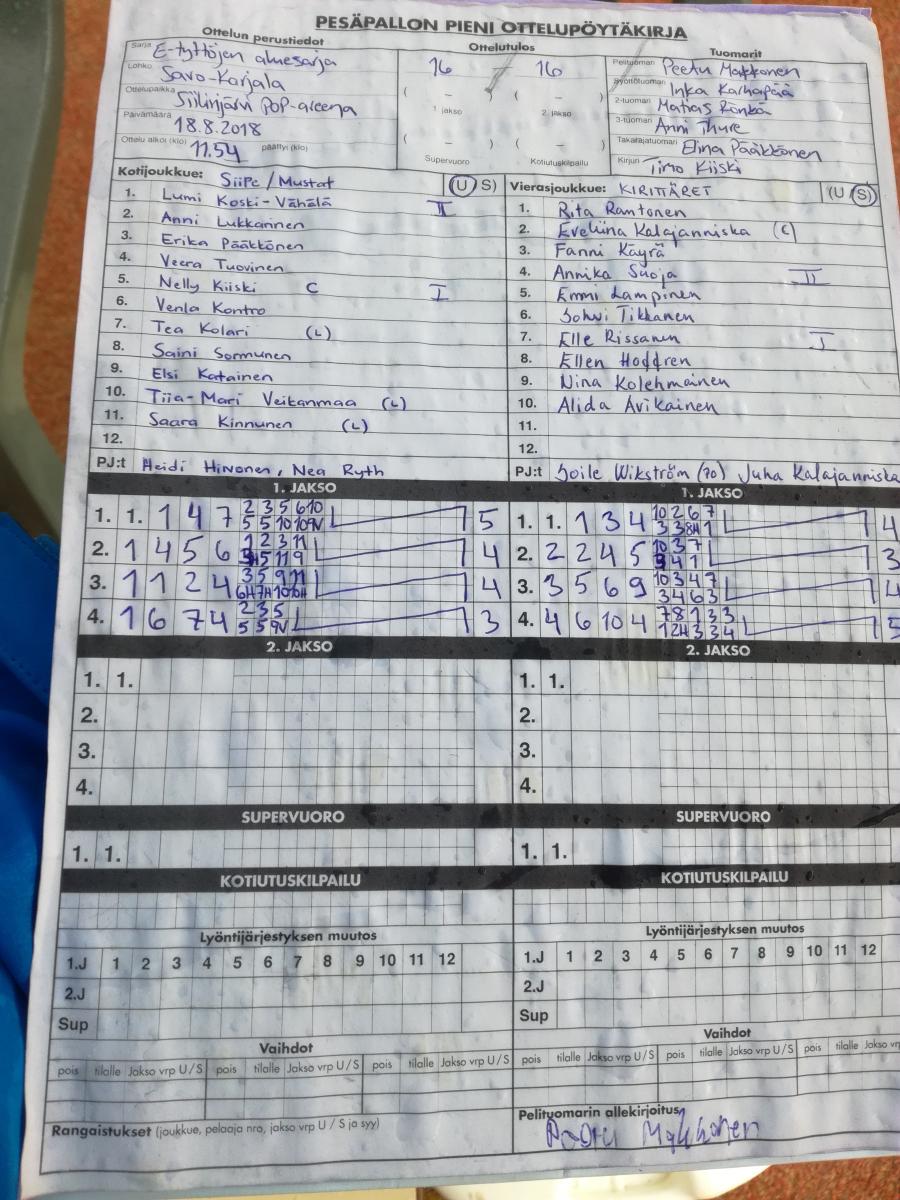 PESÄPALLON PIENI OTTELUPÖYTÄKIRJA
Ottelun perustiedot
Sarja E-tyttöjen aluesarja
Lohko Savo-Karjala
Ottelupaikka Siilinjärvi POP-areena
Päivämäärä 18.8.2018
Ottelu alkoi (klo) 11.54 päättyi (klo)
Ottelutulos
16 – 16
( – ) ( – )
1. jakso 2. jakso
( – ) ( – )
Supervuoro Kotiutuskilpailu
Tuomarit
Pelituomari Peetu Makkonen
Syöttötuomari Inka Karhapää
2-tuomari Matias Rönkä
3-tuomari Anni Thure
Takarajatuomari Elina Pääkkönen
Kirjuri Timo Kiiski
Kotijoukkue: SiiPe/Mustat (U S)
1. Lumi Koski-Vähälä II
2. Anni Lukkarinen
3. Erika Pääkkönen
4. Veera Tuovinen
5. Nelly Kiiski C I
6. Venla Kontro
7. Tea Kolari (L)
8. Saini Sormunen
9. Elsi Katainen
10. Tiia-Mari Veikanmaa (L)
11. Saara Kinnunen (L)
12.
PJ:t Heidi Hirvonen, Nea Ryth
Vierasjoukkue: KIRITTÄRET (U S)
1. Rita Rantonen
2. Eveliina Kalajanniska (C)
3. Fanni Käyrä
4. Annika Suoja II
5. Emmi Lampinen
6. Sohvi Tikkanen
7. Elle Rissanen I
8. Ellen Hoffren
9. Nina Kolehmainen
10. Alida Avikainen
11.
12.
PJ:t Soile Wikström (70) Juha Kalajanniska
1. JAKSO
1. 1. 1 4 7 2 3 5 6 10 5
5 5 10 10 9V
2. 1 4 5 6 1 2 3 11 4
5 11 9
3. 1 1 2 4 3 5 9 11 4
6H 7H 10 10H
4. 1 6 7 4 2 3 5 3
5 5 9V
1. JAKSO
1. 1. 1 3 4 10 2 6 7 4
3 3 8H 1
2. 2 2 4 5 10 3 7 3
4 1
3. 3 5 6 9 10 3 4 7 4
3 4 6 3
4. 4 6 10 4 7 8 1 3 3 5
1 2H 3 3 4
2. JAKSO
1. 1.
2.
3.
4.
2. JAKSO
1. 1.
2.
3.
4.
SUPERVUORO
1. 1.
SUPERVUORO
1. 1.
KOTIUTUSKILPAILU
KOTIUTUSKILPAILU
Lyöntijärjestyksen muutos
1.J 1 2 3 4 5 6 7 8 9 10 11 12
2.J
Sup
Lyöntijärjestyksen muutos
1.J 1 2 3 4 5 6 7 8 9 10 11 12
2.J
Sup
Vaihdot
pois tilalle Jakso vrp U/S pois tilalle Jakso vrp U/S pois tilalle Jakso vrp U/S
Vaihdot
pois tilalle Jakso vrp U/S pois tilalle Jakso vrp U/S pois tilalle Jakso
Rangaistukset (joukkue, pelaaja nro, jakso vrp U / S ja syy)
Pelituomarin allekirjoitus
Makkonen